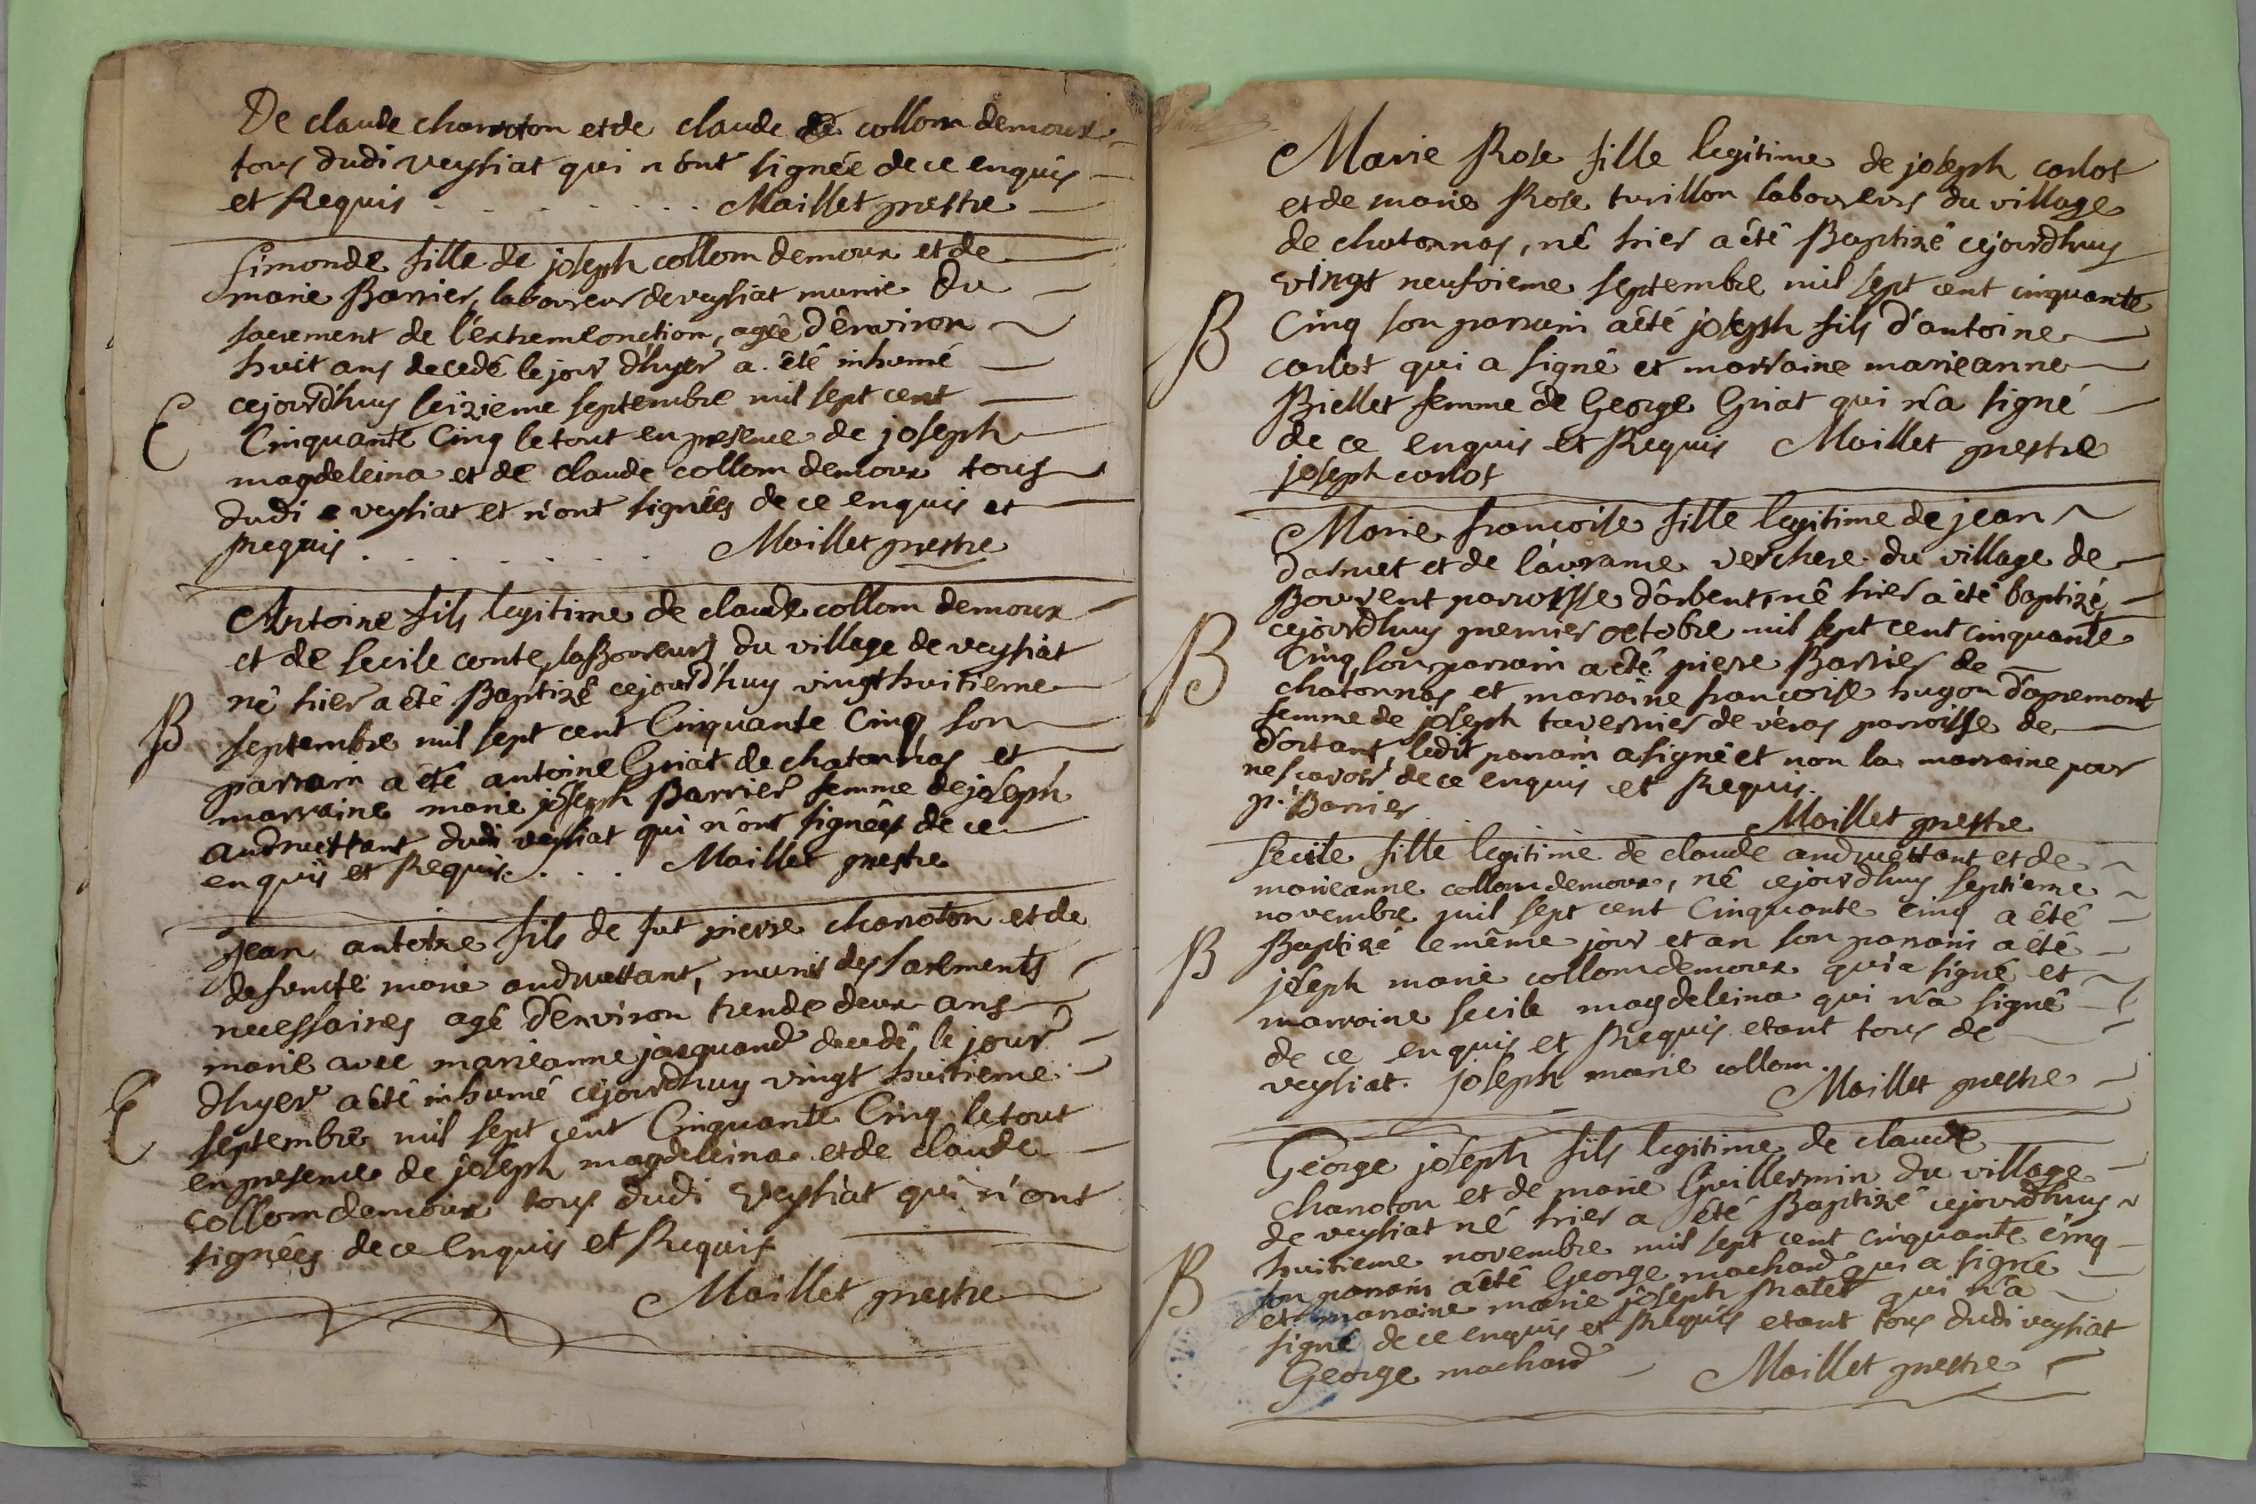 De claude chanoton et de claude de collom demoux
tous dudi veysiat qui n'ont signée de ce enquis
et Requis . . . . . . . . Maillet prestre
Simonde fille de joseph collom demoux et de
marie Barrier, laboureur de veysiat munie Du
sacrement de l'extremeonction, agée d'environ
huit ans decedé le jour d'hyer a été inhumé
cejourd'huy seizieme septembre mil sept cent
C Cinquante Cinq le tout en presence de joseph
magdeleina et de claude collom demoux tous
dudi veysiat et n'ont signées de ce enquis et
Requis . . . . . . . Maillet prestre
Antoine fils legitime de claude collom demoux
et de secile conte, laBoureurs du village de veysiat
né hier a été Baptizé cejourd'huy vingthuitieme
B septembre mil sept cent Cinquante Cinq, son
parrain a été antoine Griat de chatonnas et
marraine marie joseph Barrier femme de joseph
andruettant dudi veysiat qui n'ont signées de ce
enquis et Requis . . . . Maillet prestre
Jean antoine fils de fut pierre chanoton et de
defuncte marie andruettant, munis des sacrements
necessaires agé d'environ trende deux ans
marié avec marieanne jacquand decedé, le jour
C d'hyer a été inhumé cejourd'huy vingt huitieme
septembre mil sept cent Cinquante Cinq le tout
en presence de joseph magdeleina et de claude
collom demoux tous dudi veysiat qui n'ont
signées de ce enquis et Requis
Maillet prestre
Marie Rose fille legitime de joseph carlot
et de marie Rose turillon laboureurs du village
de chatonnas, né hier a été Baptizé cejourdhuy
vingt neufvieme septembre mil sept cent cinquante
B Cinq son parrain a été joseph fils d'antoine
carlot qui a signé et marraine marieanne
Biellet femme de George Griat qui n'a signé
de ce enquis et Requis Maillet prestre
joseph carlot
Marie francoise fille legitime de jean
darmet et de laurame verchere du village de
Bouvent parroisse d'arbent, né hier a été baptizé
cejourdhuy premier octobre mil sept cent cinquante
B Cinq, son parrain a été piere Barrier de
chatonnas et marraine francoise hugon d'apremont
femme de joseph tavernier de véras parroisse de
dortant ledit parrain a signé et non la marraine par
ne scavoir de ce enquis et Requis.
p. Barrier . . Maillet prestre
secile fille legitime de claude andruettant et de
marieanne collom demoux, né cejourdhuy septieme
novembre mil sept cent Cinquante cinq a été
B Baptizé le même jour et an son parrain a été
joseph marie collom demoux qui a signé et
marraine secile magdeleina qui n'a signé
de ce enquis et Requis etant tous de
veysiat. joseph marie collom.
Maillet prestre
George joseph fils legitime de claude
chanoton et de marie Guillermin du village
de veysiat né hier a été Baptizé cejourdhuy
huitieme novembre mil sept cent cinquante cinq
B son parrain a été George machard qui a signé
et marraine marie joseph Malet qui n'a
signé de ce enquis et Requis etant tous dudi veysiat
George machard Maillet prestre